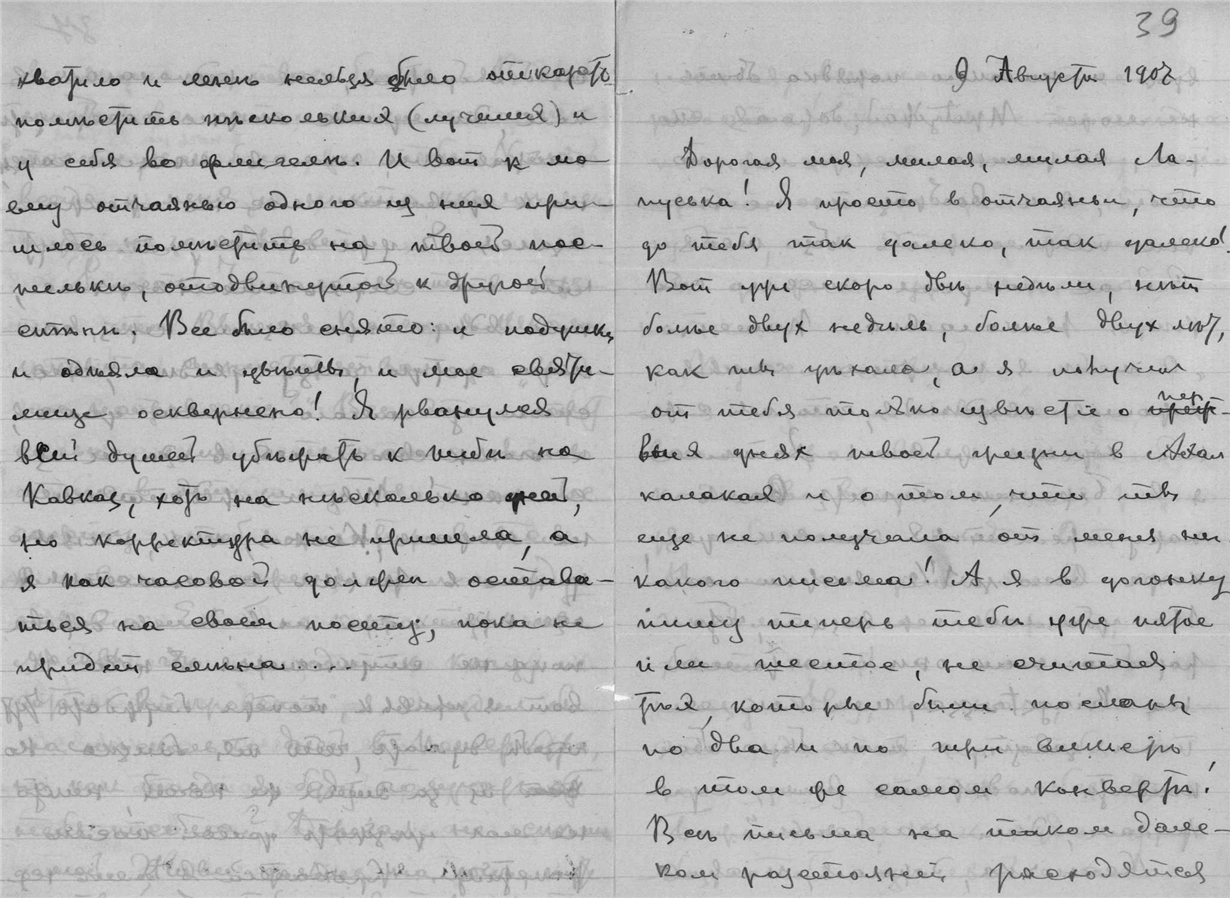 39
хватило и мене нельзя было отказать
помѣстить нѣскольких (лучших) и
у себя во флигелѣ. И вот к мо-
ему отчаянью одного из них при-
шлось помѣстить на твоей пос-
тельки, отодвинутой к другой
стѣнѣ. Все было снято: и подушки,
и одѣяла и цвѣты, и мое святи-
лище осквернено! Я рванулся
всей душей убѣжать к тебѣ на
Кавказ, хоть на нѣсколько дней,
но корректура не пришла, а
я как часовой должен оставa-
ться на своем посту, пока не
придет смѣна....
9 Августа 1907
Дорогая моя, милая, милая Ла-
пуська! Я просто в отчаяньи, что
до тебя так далеко, так далеко!
Вот уже скоро двѣ недѣли, нѣт
болѣе двух недѣль, болѣе двух лѣт,
как ты уѣхала, а я получил
от тебя только извѣстіе о пер-
вых днях твоей жизни в Ахал
калаках и о том, что ты
еще не получала от меня ни
какого письма! А я в догонку
пишу теперь тебѣ уже пятое
или шестое, не считая
тѣх, которые были посланы
по два и по три вмѣстѣ,
в том же самом конвертѣ!
Всѣ письма на таком дале-
ком разстояніи расходятся